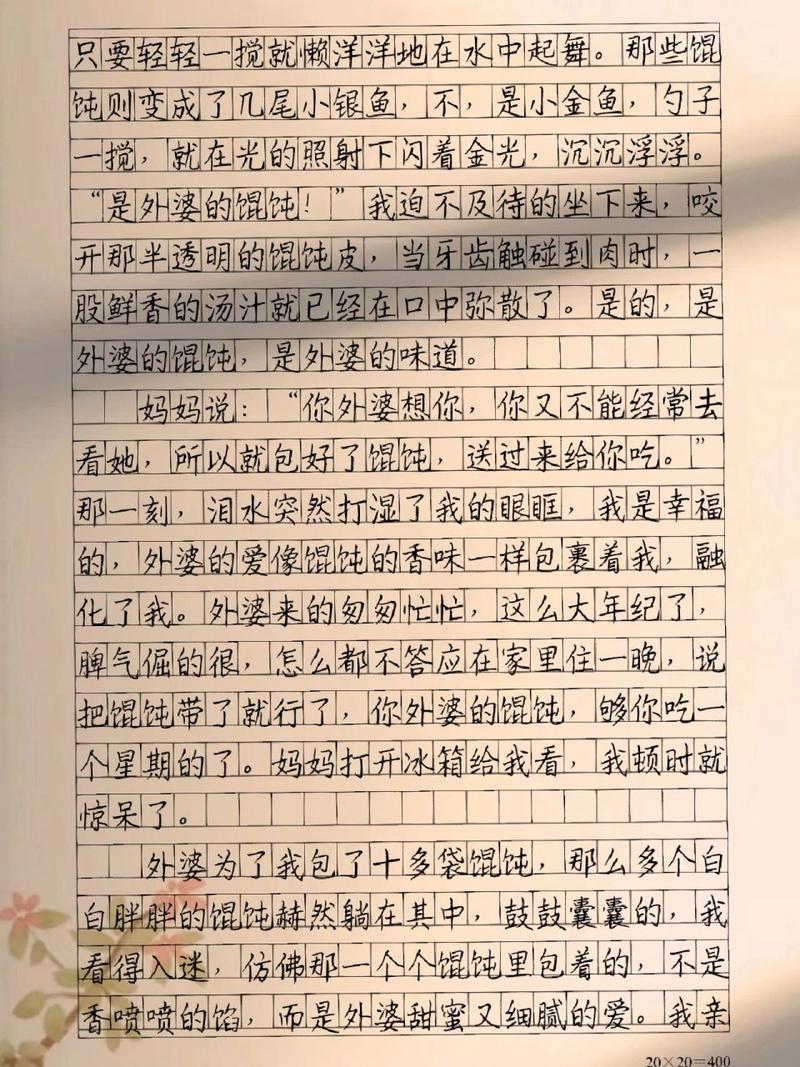 只要轻轻一搅就懒洋洋地在水中起舞。那些馄
饨则变成了几尾小银鱼，不，是小金鱼，勺子
一搅，就在光的照射下闪着金光，沉沉浮浮。
“是外婆的馄饨！”我迫不及待的坐下来，咬
开那半透明的馄饨皮，当牙齿触碰到肉时，一
股鲜香的汤汁就已经在口中弥散了。是的，是
外婆的馄饨，是外婆的味道。
妈妈说：“你外婆想你，你又不能经常去
看她，所以就包好了馄饨，送过来给你吃。”
那一刻，泪水突然打湿了我的眼眶，我是幸福
的，外婆的爱像馄饨的香味一样包裹着我，融
化了我。外婆来的匆匆忙忙，这么大年纪了，
脾气倔的很，怎么都不答应在家里住一晚，说
把馄饨带了就行了，你外婆的馄饨，够你吃一
个星期的了。妈妈打开冰箱给我看，我顿时就
惊呆了。
外婆为了我包了十多袋馄饨，那么多个白
白胖胖的馄饨赫然躺在其中，鼓鼓囊囊的，我
看得入迷，仿佛那一个个馄饨里包着的，不是
香喷喷的馅，而是外婆甜蜜又细腻的爱。我亲
20×20=400